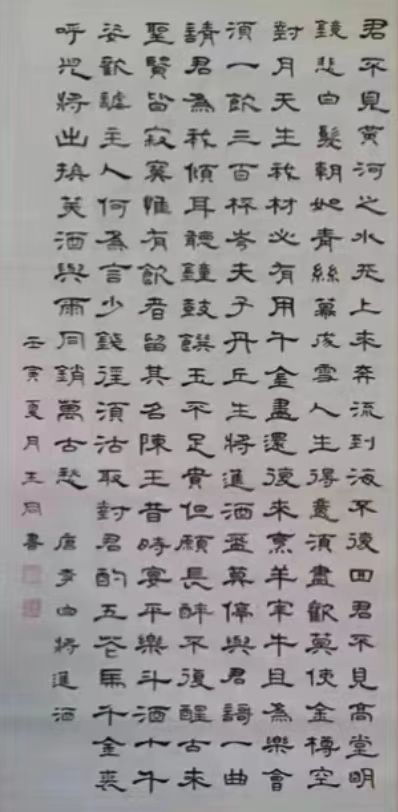 君不見黃河之水天上來奔流到海不復回君不見高堂明
鏡悲白髮朝如青絲暮成雪人生得意須盡歡莫使金樽空
對月天生我材必有用千金盡還復來烹羊宰牛且為樂會
須一飲三百杯岑夫子丹丘生將進酒盃莫停與君謌一曲
請君為我傾耳聽鐘鼓饌玉不足貴但願長醉不復醒古來
聖賢皆寂寞惟有飲者留其名陳王昔時宴平樂斗酒十千
恣歡謔主人何為言少錢徑須沽取對君酌五花馬千金裘
呼兒將出換美酒與爾同銷萬古愁 唐李白將進酒
壬寅夏月王同書